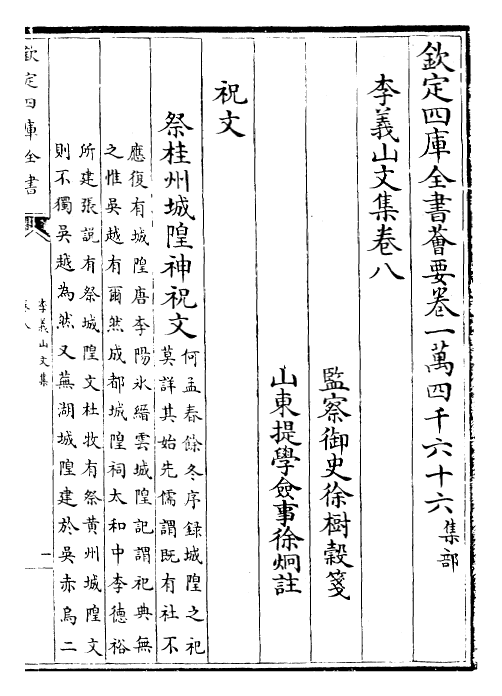 欽定四庫全書薈要卷一萬四千六十六集部
李義山文集卷八
監察御史徐樹穀箋
山東提學僉事徐炯註
祝文
祭桂州城隍神祝文何孟春餘冬序録城隍之祀
莫詳其始先儒謂既有社不
應復有城隍唐李陽氷縉雲城隍記謂祀典無
之惟吳越有爾然成都城隍祠太和中李德裕
所建張説有祭城隍文杜牧有祭黄州城隍文
則不獨吳越為然又蕪湖城隍建於吳赤烏二
欽定四庫全書
李義山文集
卷八
一